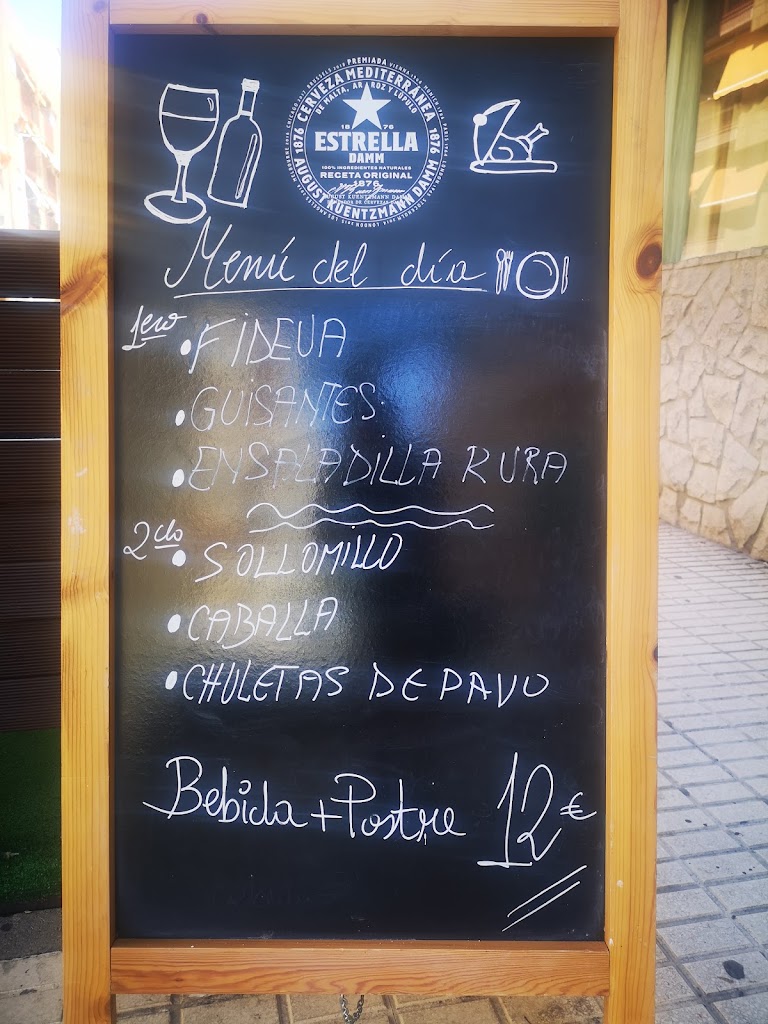 PREMIADA
CERVEZA MEDITERRÁNEA
DE MALTA, ARROZ Y LÚPULO
1876
1876
18 76
ESTRELLA
DAMM
100% INGREDIENTES NATURALES
RECETA ORIGINAL
1876
AUGUST KUENTZMANN DAMM
Menú del día
1ero
• FIDEUA
• GUISANTES
• ENSALADILLA RURA
2do
• SOLLOMILLO
• CABALLA
• CHULETAS DE PAVO
Bebida + Postre 12€